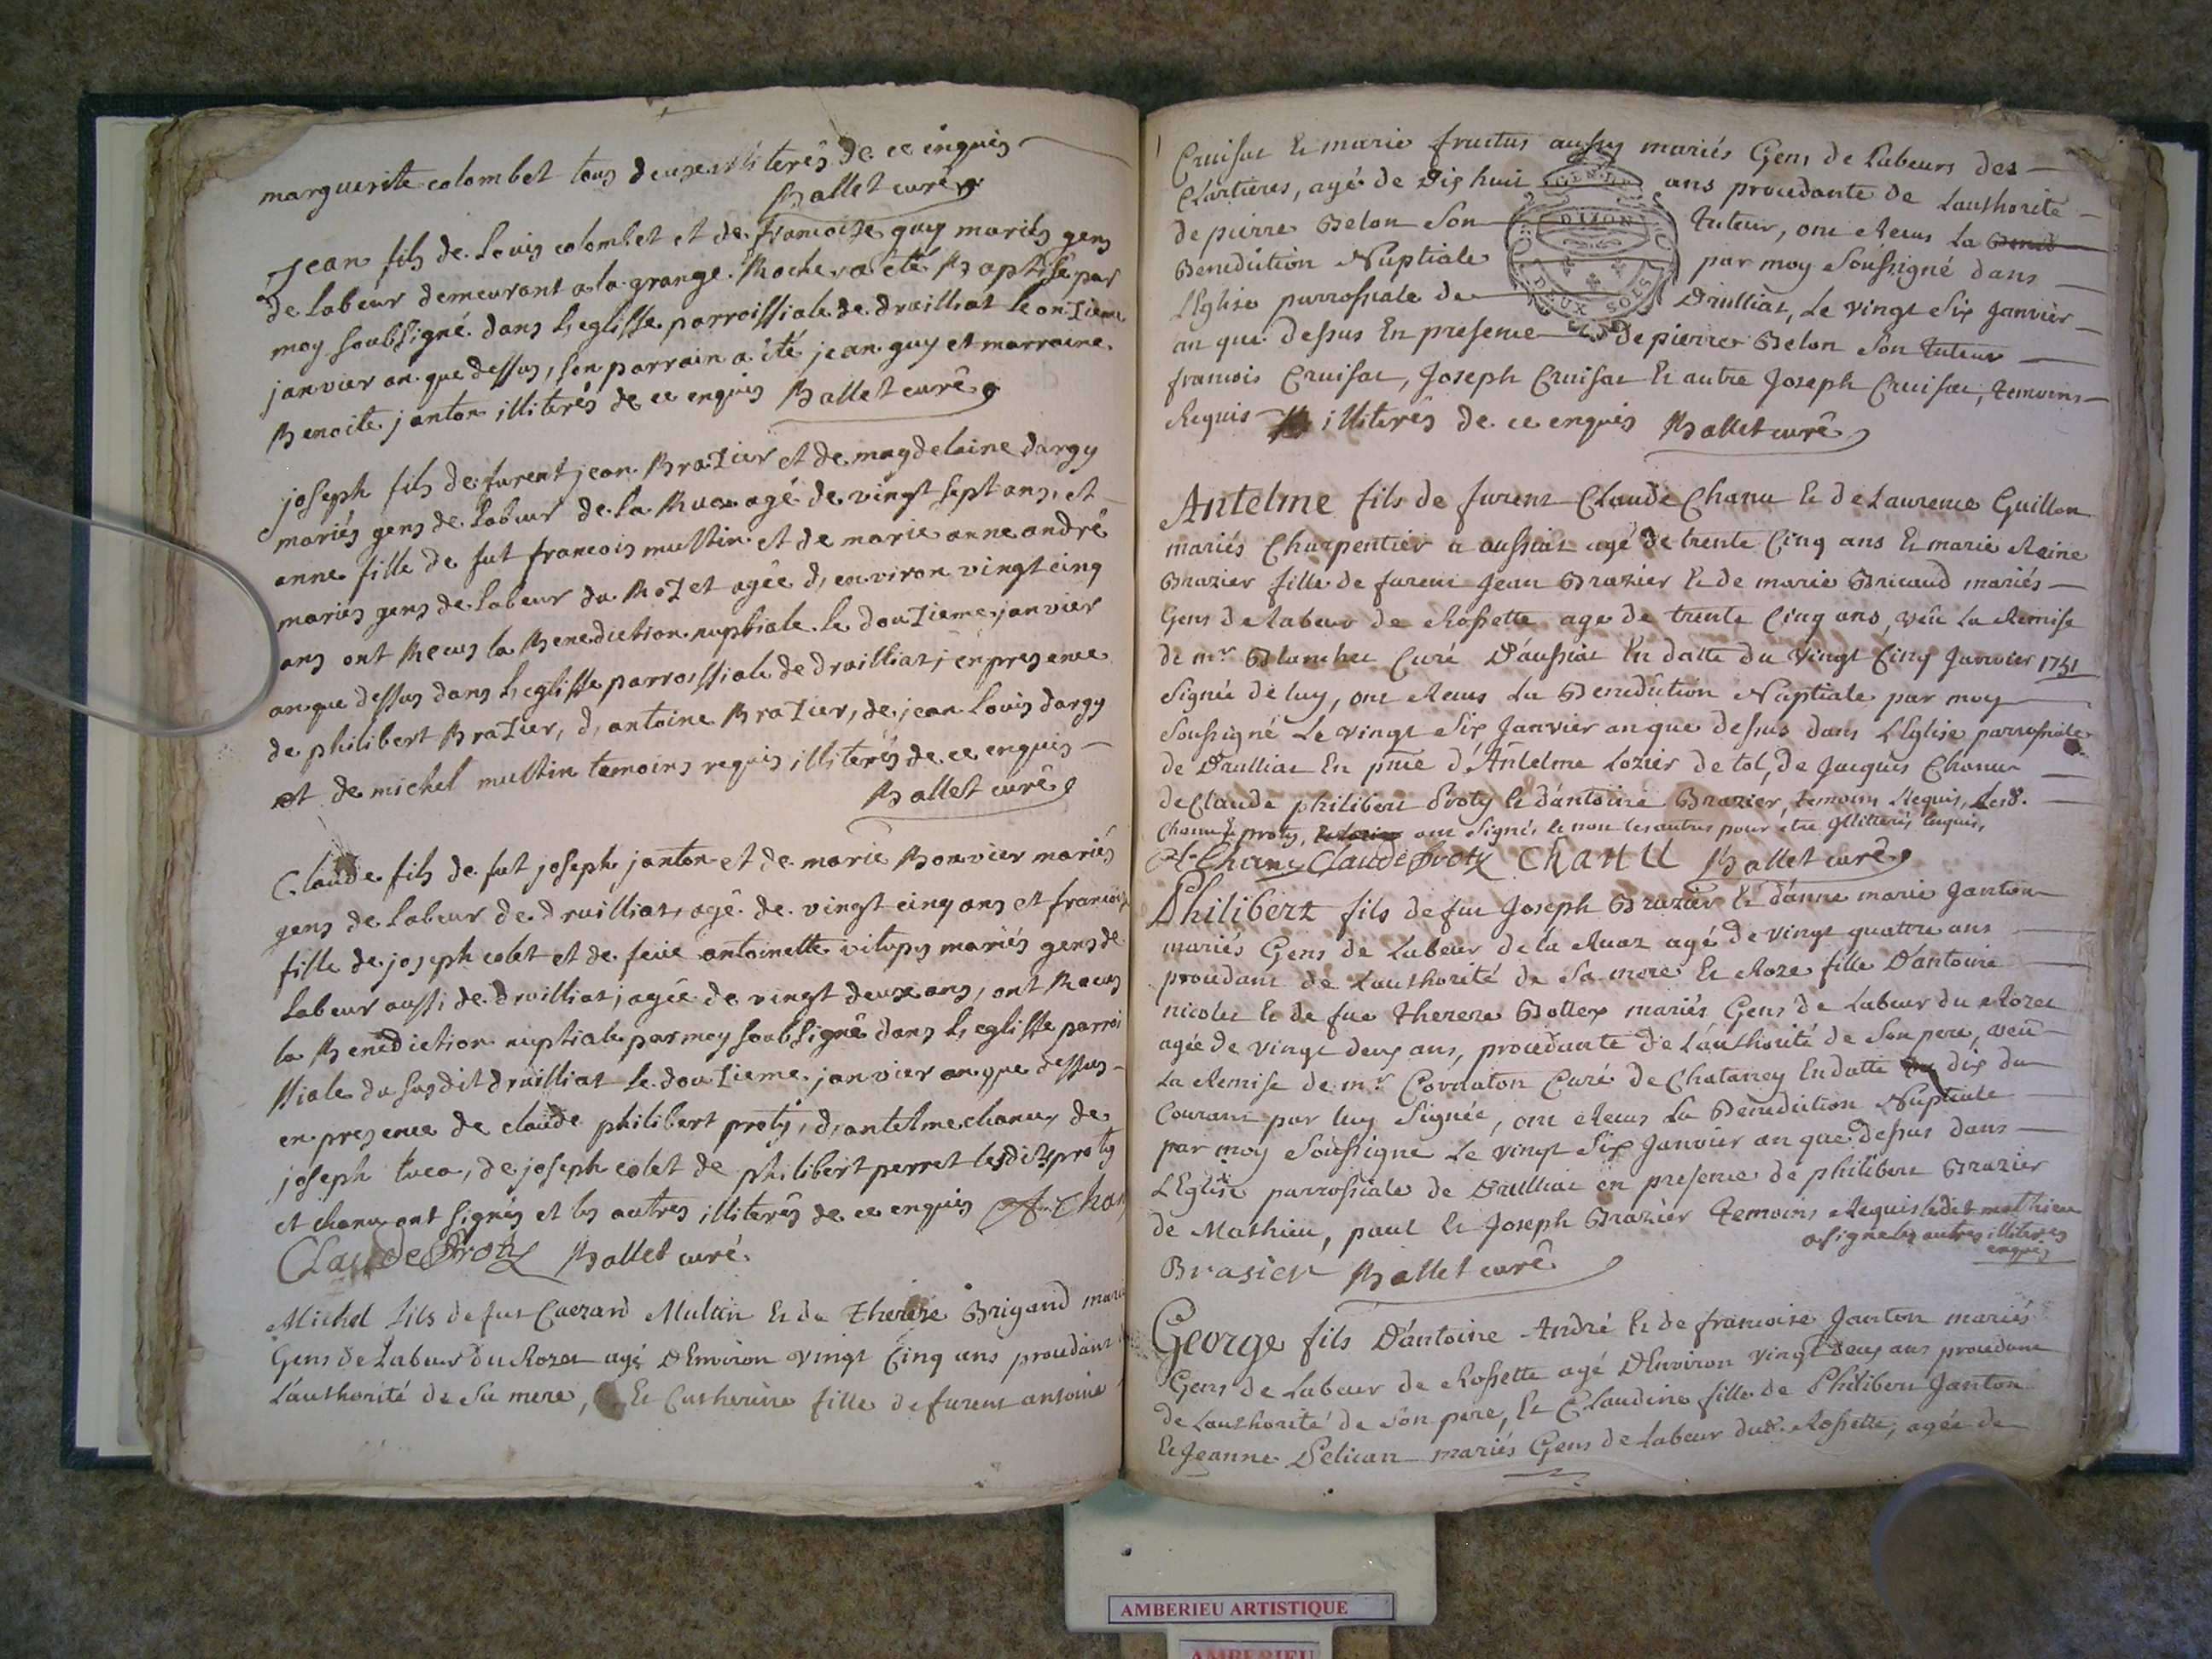 marguerite colombet tous deux illiterés de ce enquis
Ballet curé
Jean fils de Louis colombet et de francoise guy mariés gens
de labeur demeurant a la grange Roche a eté Baptisé par
moy soubsigné dans l'eglisse parroissiale de druilliat le onzieme
janvier an que dessus, son parrain a été jean guy et marraine
Benoite janton illiterés de ce enquis Ballet curé
joseph fils de furent jean Brazier et de magdelaine dargy
mariés gens de labeur de la Ruaz agé de vingt sept ans, et
anne fille de fut francois multin et de marie anne andré
mariés gens de labeur du Rozet agée d'environ vingt cinq
ans ont Recus la Benediction nuptiale le douzieme janvier
an que dessus dans l'eglisse parroissiale de druilliat, en presence
de philibert Brazier, d'antoine Brazier, de jean Louis dargy
et de michel multin temoins requis illiterés de ce enquis
Ballet curé
Claude fils de fut joseph janton et de marie Bonvier mariés
gens de labeur de druilliat, agé de vingt cinq ans et francoise
fille de joseph colet et de feüe antoinette vilopy mariés gens de
labeur aussi de druilliat, agée de vingt deux ans, ont Recus
la Benediction nuptiale par moy soubsigné dans l'eglisse parroi
ssiale du susdit druilliat le douzieme janvier an que dessus
en presence de claude philibert proty, d'antelme chanu, de
joseph tuca, de joseph colet de philibert perret lesdits proty
et chanu ont signés et les autres illiterés de ce enquis A. Chan
Claude Proty Ballet curé
Michel fils de fut Cuerard Multin & de Therese Brigand mari
Gens de Labeur du Rozet agé d'Environ vingt Cinq ans procedant
L'authorité de Sa mere, Et Catherine fille de furent antoine
Cruisat & marie fructus aussy mariés Gens de Labeurs des
Clartieres, agé de Dix huit ans procedante de Lauthorité
GEN DE DIJON DEUX SOLS
de pierre Belon Son Tuteur, ont Recus La
Benediction Nuptiale par moy Soussigné dans
L'Eglise parrossiale de Drulliat, Le vingt Six Janvier
an que dessus En presence de pierre Belon Son Tuteur
francois Cruisat, Joseph Cruisat & autre Joseph Cruisat, temoins
Requis illiterés de ce enquis Ballet curé
Antelme fils de furent Claude Chanu & de Laurence Guillon
mariés Charpentier a aussiat agé de trente Cinq ans & marie Reine
Brazier fille de furent Jean Brazier & de marie Bricaud mariés
Gens de Labeur de Rossette age de trente Cinq ans, veu La Remise
de mr Blanchet Curé D'aussiat En datte du Vingt Cinq Janvier 1751
Signée de luy, ont Recus La Benediction Nuptiale par moy
Soussigné Le vingt Six Janvier an que dessus dans L'Eglise parrossiale
de Drulliat En pnce d'Antelme Lozier de tol, de Jacques Chanu
de Claude philibert Proty & dantoine Brazier, temoins Requis, Lesd.
Chanu & proty, ont Signés & non les autres pour être Illitterés Enquis,
A. Chanu Claude Proty Chanu Ballet curé
Philibert fils de fut Joseph Brazier & d'anne marie Janton
mariés Gens de Labeur de la Ruaz agé de vingt quattre ans
procedant de Lauthorité de Sa mere & Roze fille D'antoine
nicolet & de fue Therese Bollex mariés Gens de Labeur du Rozet
agée de vingt deux ans, procedante de L'authorité de Son pere, veu
La Remise de mr Corraton Curé de Chatanney En datte dix du
Courant par luy Signée, ont Recus La Benediction Nuptiale
par moy Soussigne Le vingt Six Janvier an que dessus dans
L'Eglise parrossiale de Drulliat en presence de philibert Brazier
de Mathieu, paul & Joseph Brazier Temoins Requis ledit mathieu
a signe les autres illiteres
enquis
Brasier Ballet curé
George fils D'antoine André & de francoise Janton mariés
Gens de Labeur de Rossette agé D'Environ vingt deux ans procedant
de Lauthorité de Son pere, & Claudine fille de Philibert Janton
& Jeanne Pelican mariés Gens de Labeur dud. Rossette, agée de
AMBERIEU ARTISTIQUE
AMBERIEU